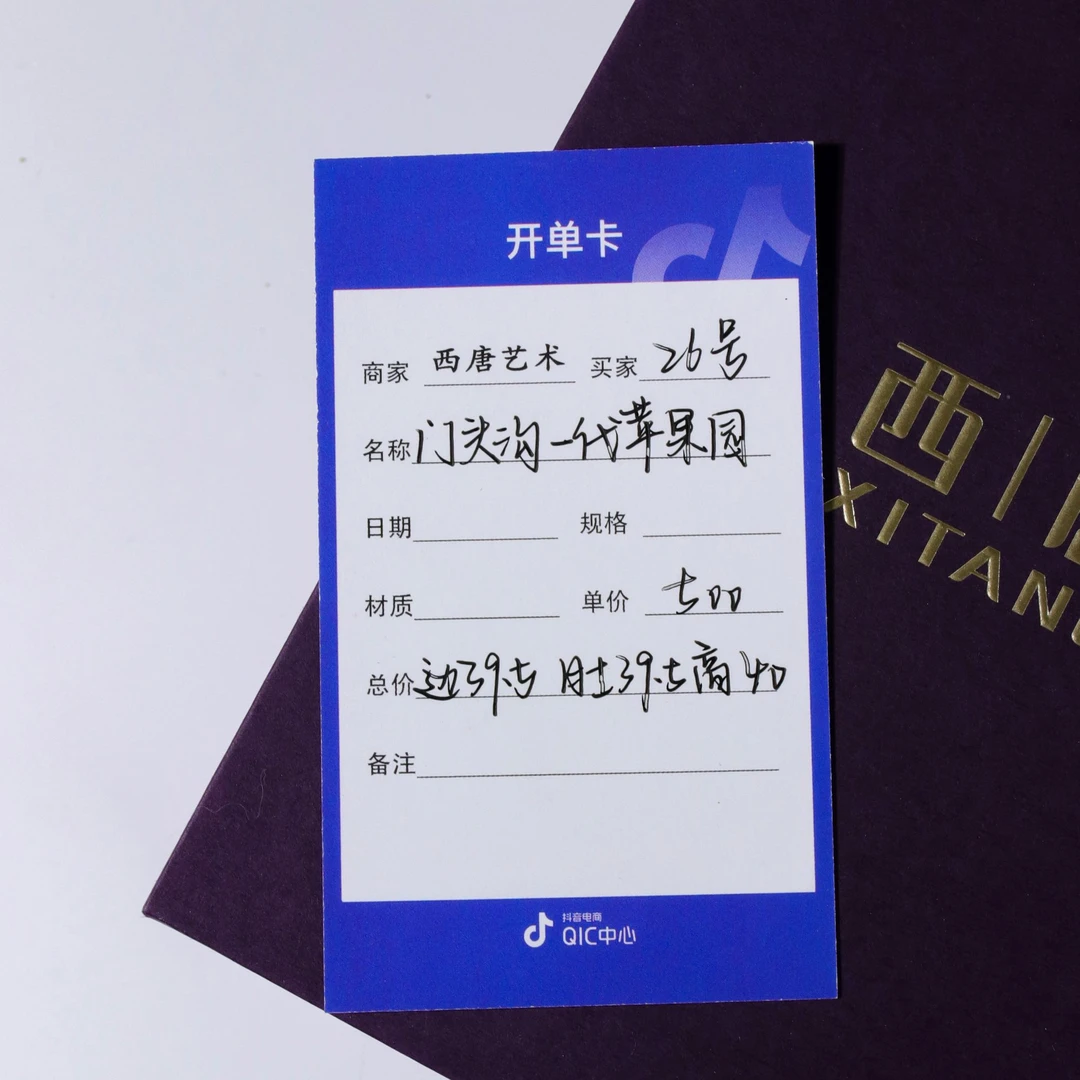 开单卡
商家 西唐艺术 买家 26号
名称 门头沟一代苹果园
日期 规格
材质 单价 500
总价 边39.5 肚39.5高40
备注
抖音电商
QIC中心
西
XITANG